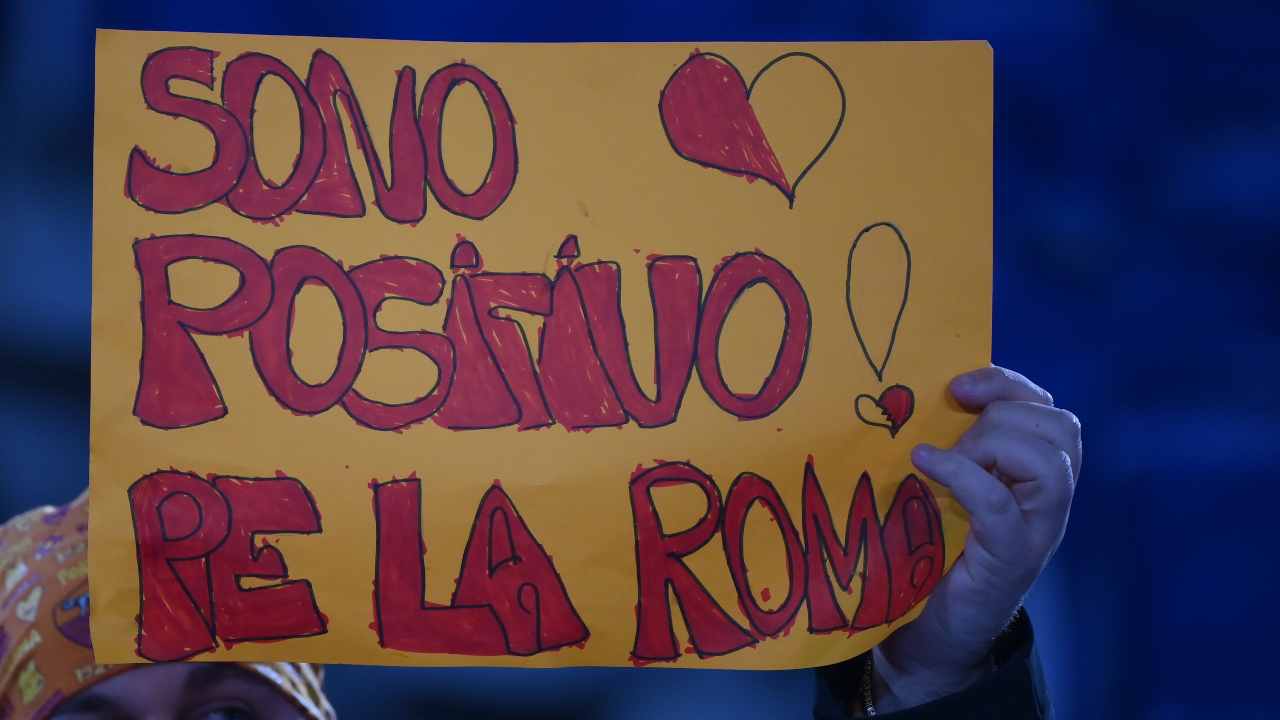 SONO
POSITIVO!
PE LA ROMA